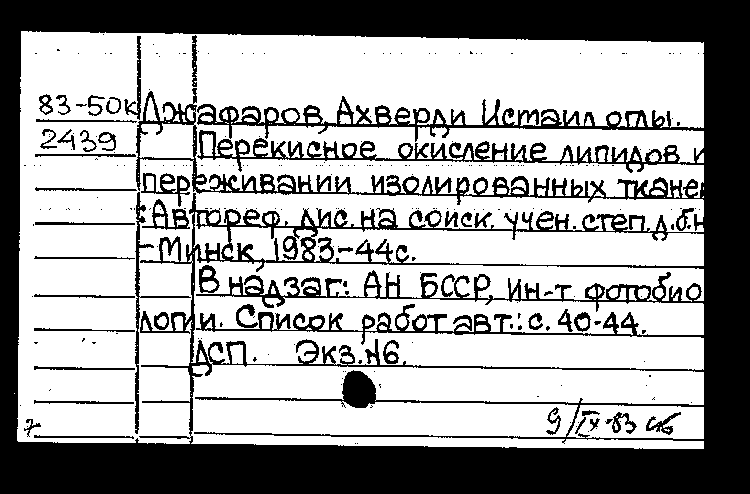 83-50к Джафаров, Ахверди Истаил оглы.
2439 Перекисное окисление липидов и
переживании изолированных ткане
: Автореф. дис. на соиск. учен. степ. д.б.н
-Минск, 1983.-44с.
В надзаг.: АН БССР, Ин-т фотобио
логии. Список работ авт.: с. 40-44.
ДСП. Экз.№6.
9/IX-83
7